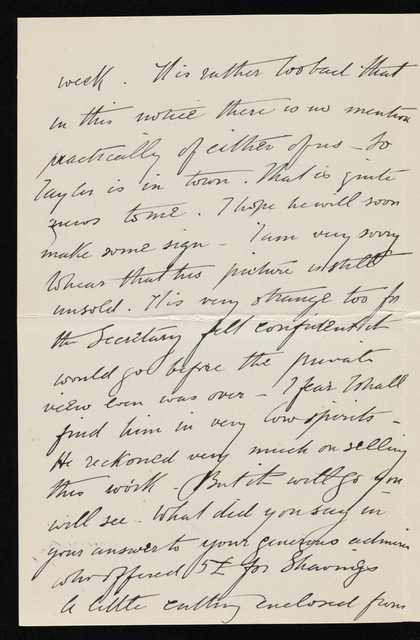 week. It is rather too bad that
in this notice there is no mention
practically of either of us – So
Tayler is in town. That is quite
news to me. I hope he will soon
make some sign – I am very sorry
to hear that his picture is still
unsold. It is very strange too for
the Secretary felt confident it
would go before the private
view even was over – I fear I shall
find him in very low spirits –
He reckoned very much on selling
this work – But it will go you
will see. What did you say in
your answer to your generous admirer
who offered 5£ for Shavings
A little cutting enclosed from